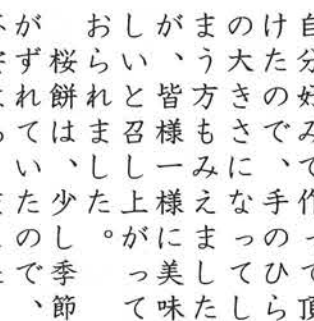 自分好みで作って頂
けたので、手のひら
の大きさになってし
まう方もみえました
が、皆様一様に美味
しいと召し上がって
おられました。
桜餅は、少し季節
がずれていたので、